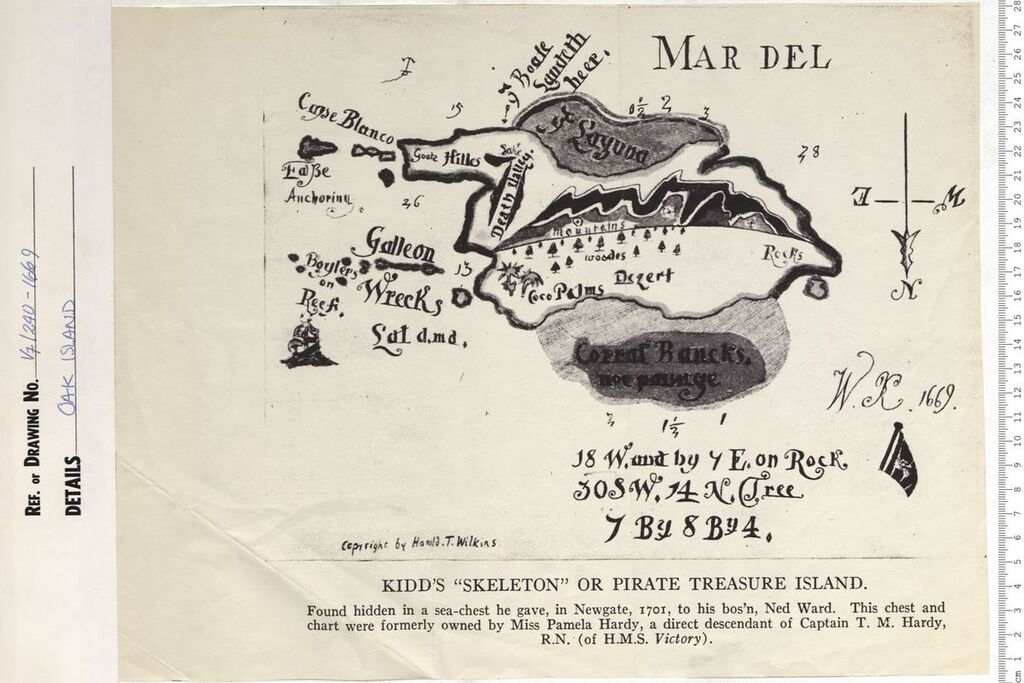 REF. OR DRAWING No. V7/240-1669
DETAILS OAK ISLAND
MAR DEL
yͤ Boate
Landeth
heer.
15
½ 2 3
28
Cayse Blanco
Goate Hills
yͤ Laguna
Death Valley.
Anchoring
26
Galleon
Wrecks
13
on
Reef.
mountains
woodes
Coco Palms
Dezert
Rocks
E W
N
Corral Bancks,
noe passage
W. K. 1669.
2 1½ 1
18 W. and by 7 E. on Rock.
30 S W. 14 N. Tree
7 By 8 By 4.
Copyright by Harold. T. Wilkins
KIDD'S "SKELETON" OR PIRATE TREASURE ISLAND.
Found hidden in a sea-chest he gave, in Newgate, 1701, to his bos'n, Ned Ward. This chest and
chart were formerly owned by Miss Pamela Hardy, a direct descendant of Captain T. M. Hardy,
R.N. (of H.M.S. Victory).
cm 1 2 3 4 5 6 7 8 9 10 11 12 13 14 15 16 17 18 19 20 21 22 23 24 25 26 27 28